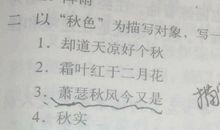 二 以“秋色”为描写对象，写一
1. 却道天凉好个秋
2. 霜叶红于二月花
3. 萧瑟秋风今又是
4. 秋实